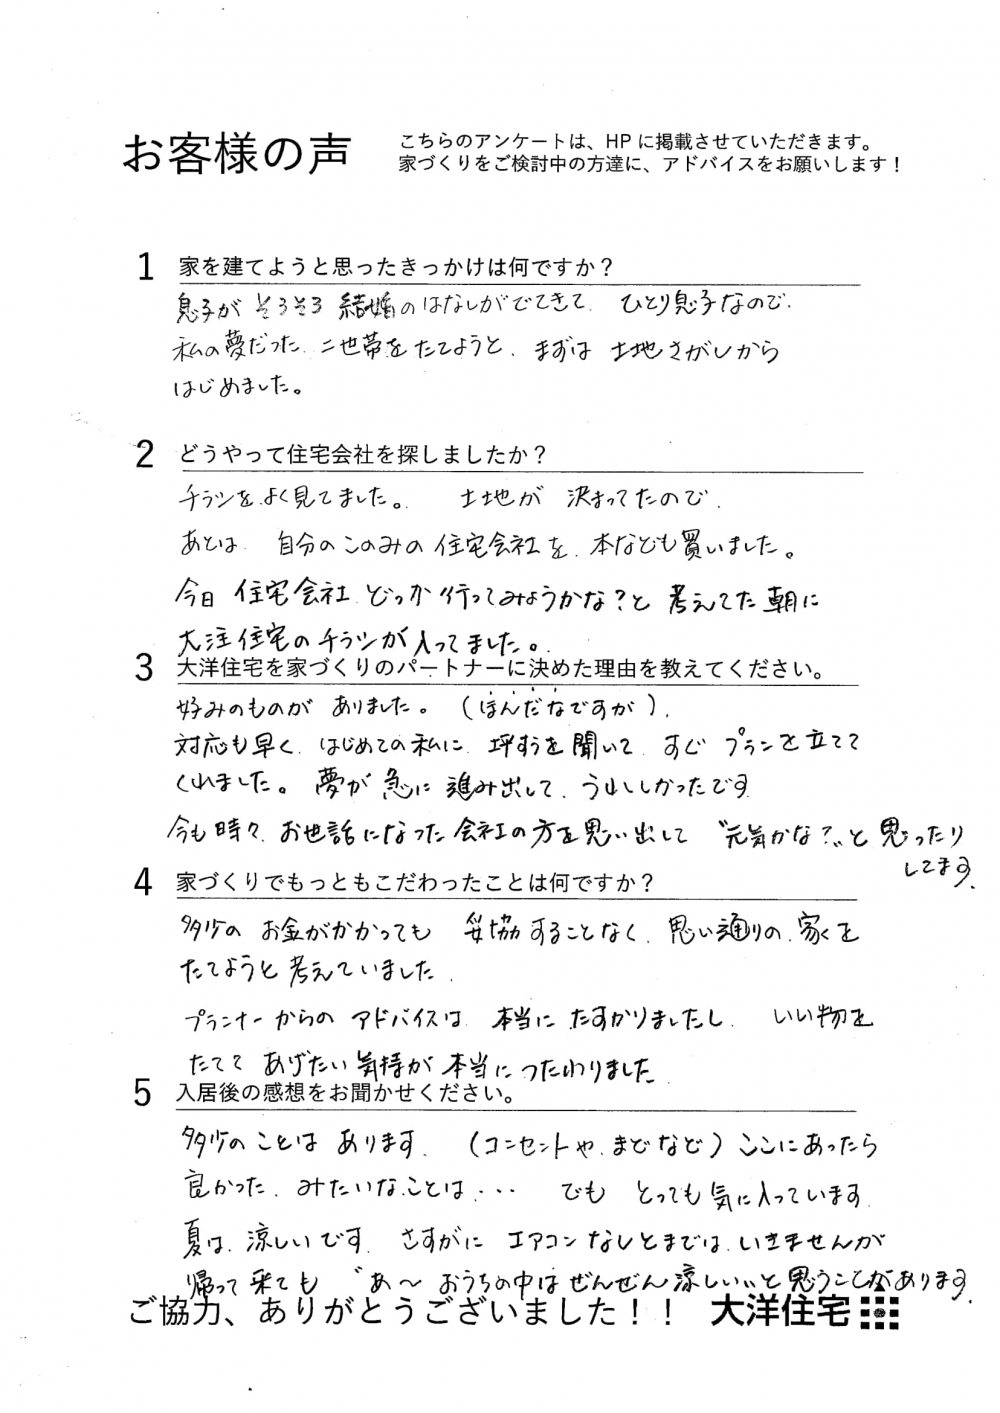 お客様の声
こちらのアンケートは、HPに掲載させていただきます。
家づくりをご検討中の方達に、アドバイスをお願いします!
1 家を建てようと思ったきっかけは何ですか?
息子が そろそろ 結婚のはなしがでてきて、ひとり息子なので、
私の夢だった、二世帯をたてようと、まずは 土地さがしから
はじめました。
2 どうやって住宅会社を探しましたか?
チラシをよく見てました。 土地が 決まってたので、
あとは 自分のこのみの住宅会社を、本なども買いました。
今日 住宅会社 どっか行ってみようかな?と 考えてた朝に
大洋住宅のチラシが入ってました。
3 大洋住宅を家づくりのパートナーに決めた理由を教えてください。
好みのものが ありました。(ほんだなですが)、
対応も早く、はじめての私に、坪すうを聞いて、すぐ プランを立てて
くれました。夢が 急に 進み出して、うれしかったです
今も時々、お世話になった会社の方を思い出して "元気かな?"と思ったり
してます、
4 家づくりでもっともこだわったことは何ですか?
多少の お金がかかっても 妥協することなく、思い通りの、家を
たてようと考えていました、
プランナーからの アドバイスは 本当に たすかりましたし、 いい物を
たてて あげたい気持が本当につたわりました、
5 入居後の感想をお聞かせください。
多少のことは あります、(コンセントや、まどなど)ここにあったら
良かった、みたいなことは・・・ でも とっても気に入っています、
夏は、涼しいです、さすがに エアコン なしとまでは、いきませんが
帰って来ても "あ〜 おうちの中はぜんぜん涼しい"と思うことがあります、
ご協力、ありがとうございました!! 大洋住宅